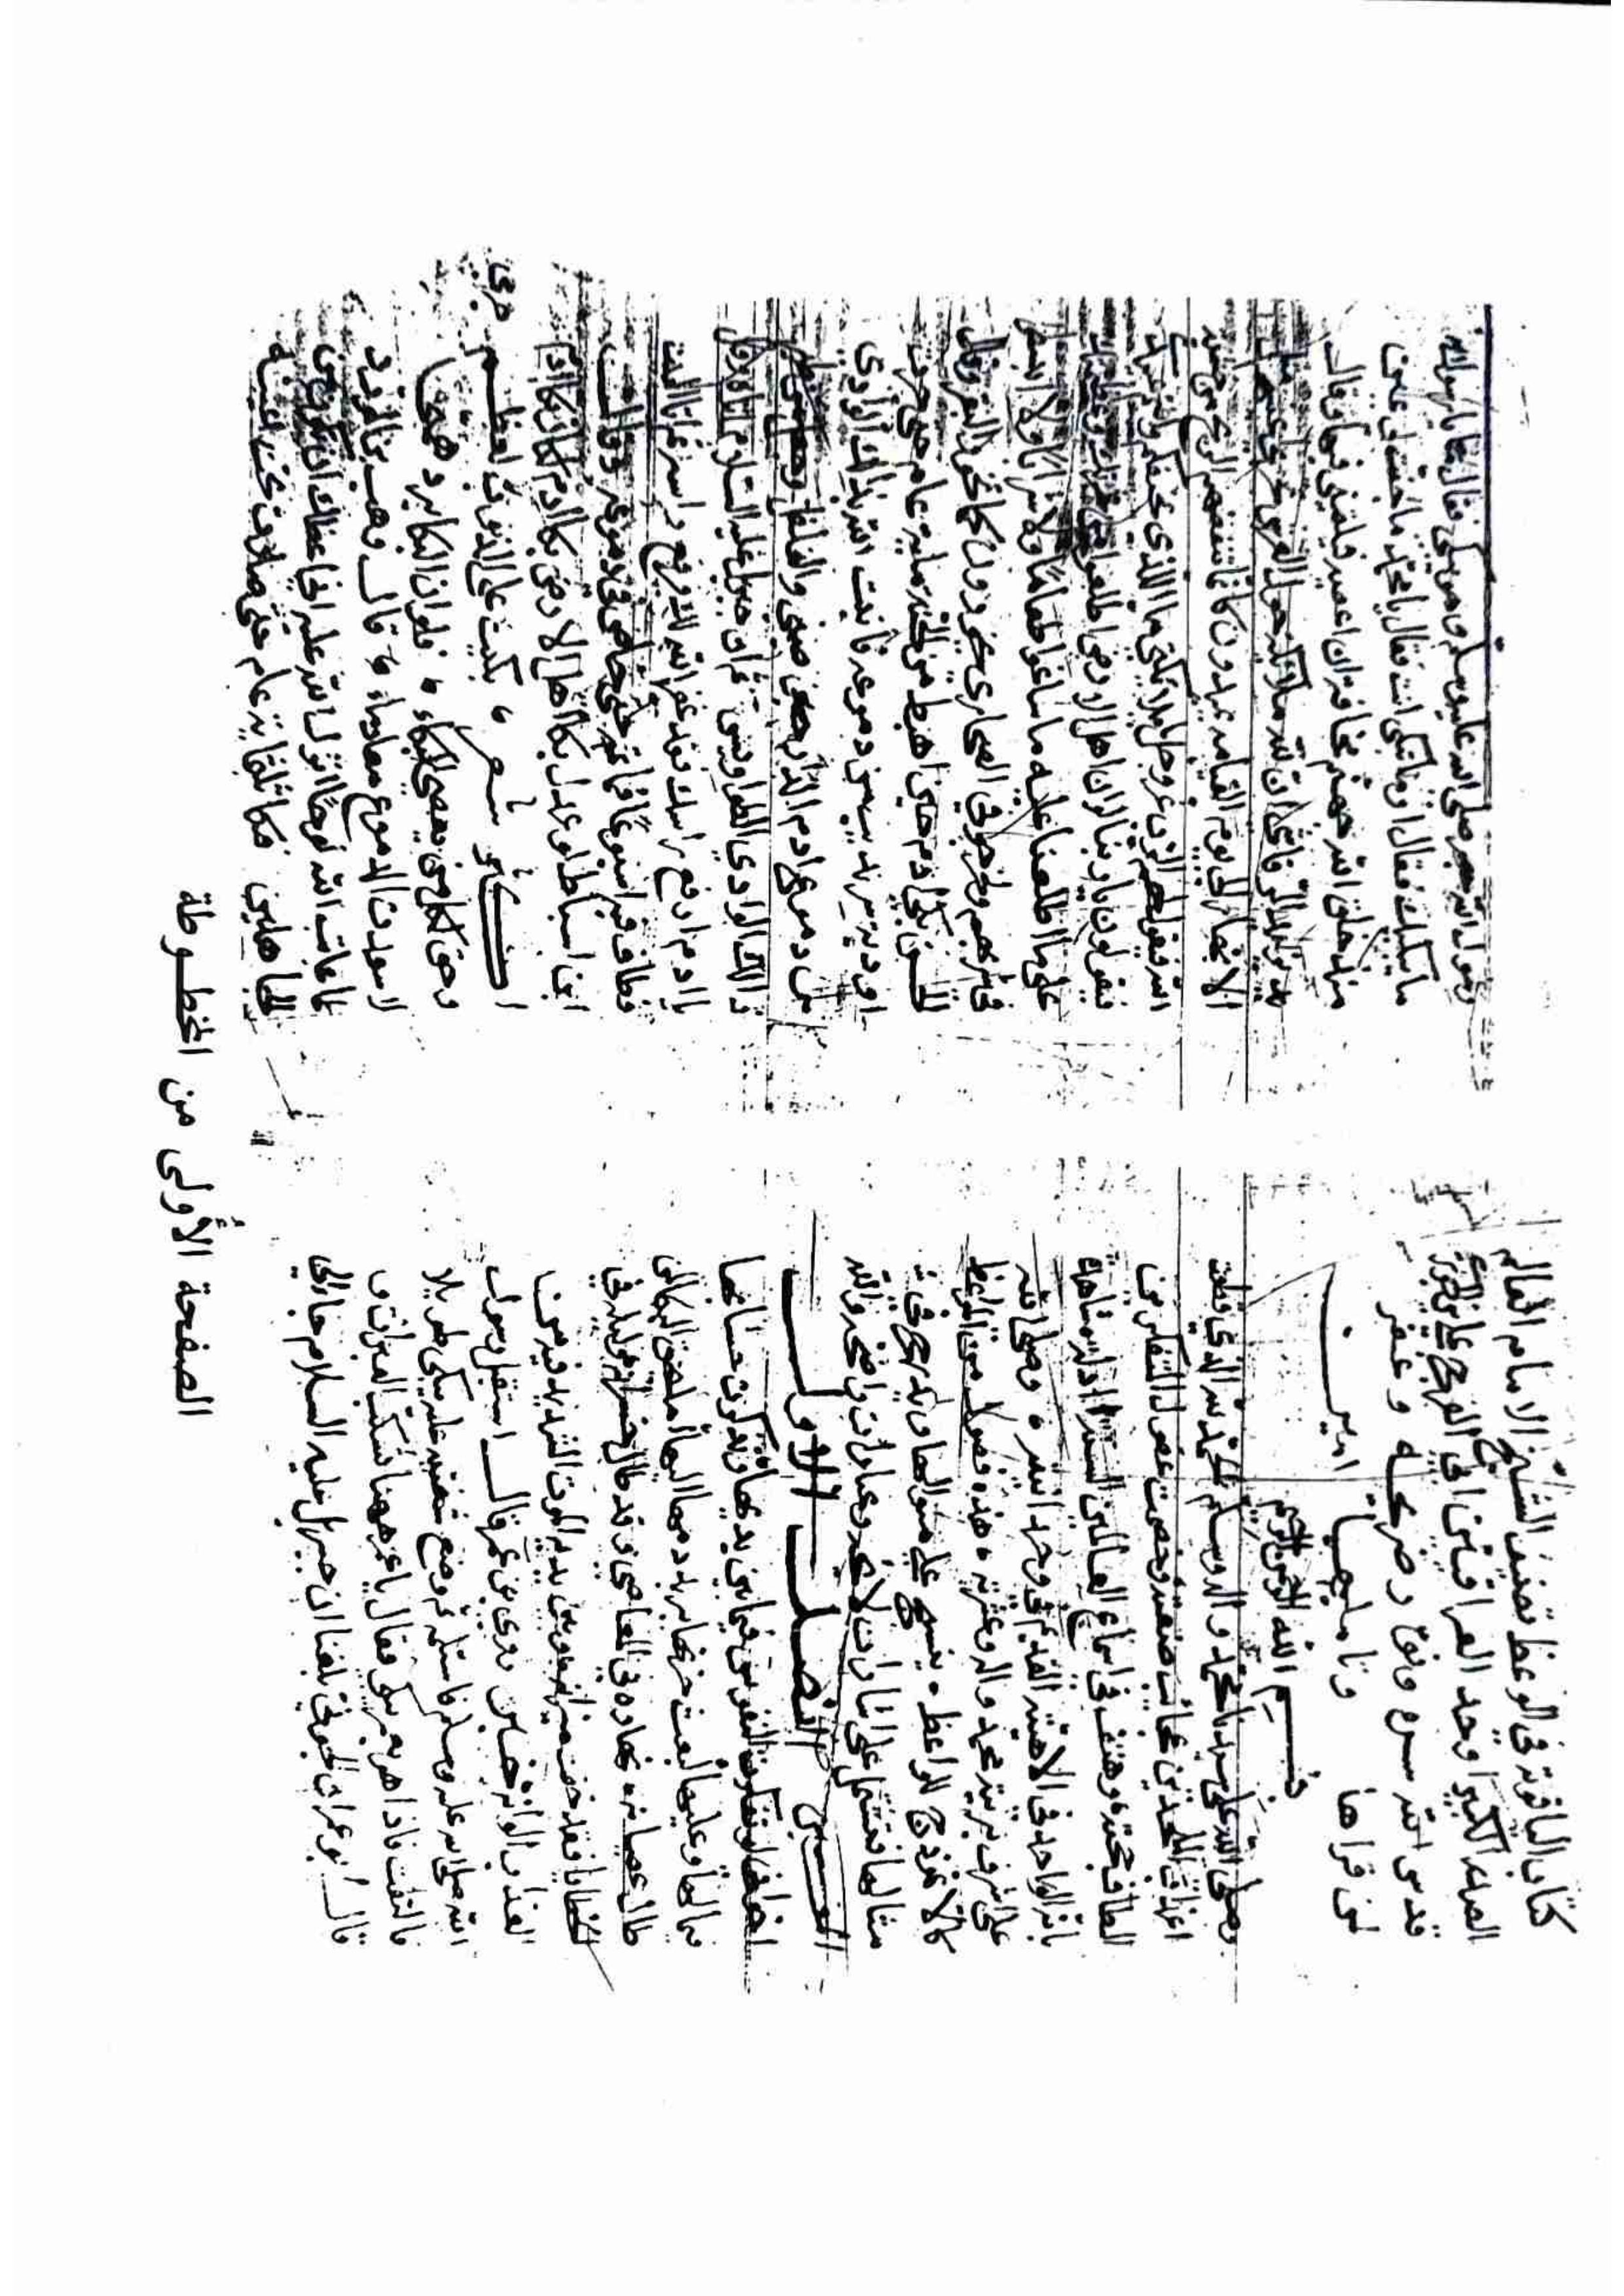 كتاب الياقوتة في الوعظ تصنيف الشيخ الامام العالم
العلامة الكبير اوحد العراقين ابي الفرج علي بن الجوزي
قدس الله سره ونور ضريحه وغفر
لمن قراها وتاملها امين
بسم الله الرحمن الرحيم
وصلى الله على سيدنا محمد واله وسلم الحمد لله الذي قطعت
العارف بحججه وهتف في اسماع العالمين
بانه الواحد في
على اشرف بريته محمد واله وعترته هذه فصول من الوعظ
كالانموذج للواعظ ينسج على منوالها
مثالها تشتمل على اشارات لائحة وعبارات واضحة والله
المعين الفصل الاول
اخواني لو تفكرت النفوس فيما بين يديها وتذكرت حسابها
فيما لها وعليها لبعث حزنها بريد دمعها اليها اما يحق البكا لمن
طال عصيانه نهاره في المعاصي وقد طال خسرانه وليله في
الخطايا فقد خف ميزانه وبين يديه الموت الشديد فيه من
العذاب الوانه روى ابن عمر قال استقبل رسول
الله صلى الله عليه وسلم الحجر فاستلمه ثم وضع شفتيه عليه يبكي طويلا
فالتفت فاذا هو بعمر يبكي فقال يا عمر ههنا تسكب العبرات و
قال ابو عمران الجوني بلغنا ان جبريل عليه السلام جاء الى
رسول الله صلى الله عليه وسلم وهو يبكي فقال يا رسول الله
ما يبكيك فقال او ما تبكي انت فقال يا محمد ما جفت لي عين
منذ خلق الله جهنم مخافة ان اعصيه فيلقيني فيها وقال
يزيد الرقاشي ان لله ملائكة حول العرش تجري اعينهم مثل
الانهار الى يوم القيامة يميدون كانما تنفضهم الريح من خشية
الله فيقول لهم الرب عز وجل يا ملائكتي ما الذي يخيفكم وانتم عبيدي
فيقولون يا ربنا لو ان اهل الارض اطلعوا من عزتك وعظمتك
على ما اطلعنا عليه ما ساغوا طعاما ولا شرابا ولا انبسطوا
في فرشهم ولخرجوا في الصحارى يخورون كما تخور البقر وقال
الحسن بكى ادم حين اهبط من الجنة ماية عام حتى جرت
اودية سرنديب من دموعه فانبت الله بذلك الوادي
من دموع ادم الدارصيني والفلفل وجعل من طير
ذلك الوادي الطواويس ثم ان جبريل عليه السلام اتاه وقال
يا ادم ارفع راسك فقد غفر الله لك فرفع راسه ثم اتى البيت
فطاف اسبوعا فما اتمه حتى خاض في دموعه وقال
ابن اسباط لو عدل بكا اهل الارض ببكا ادم لكان بكا ادم
اكثر شعر بكيت على الذنوب لعظم جرمي
وحق لكل من يعصي البكاء فلو ان البكا يرد همي
لاسعدت الدموع معا دماء وقال وهيب بن الورد
لما عاتب الله نوحا انزل الله عليه اني اعظك ان تكون من
الجاهلين فبكا ثلثمايه عام حتى صار تحت عينيه
الصفحة الأولى من المخطوطة